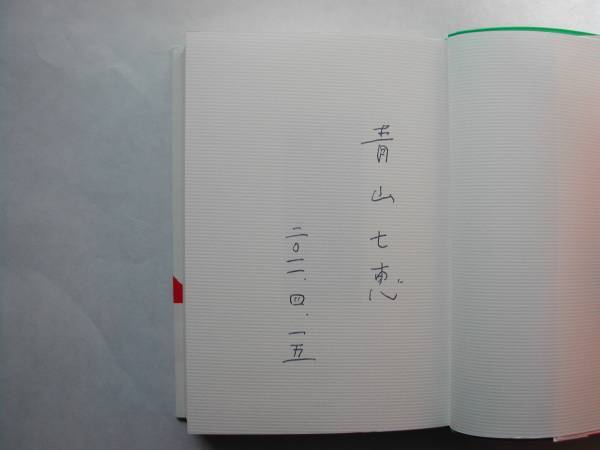 青山七恵
二〇一一.四.一五